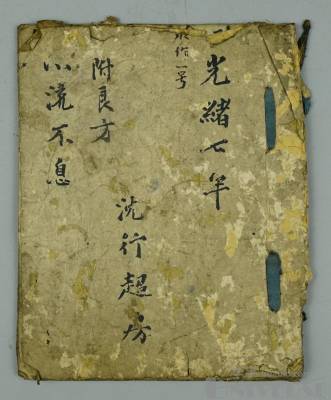 光緒七年
作一号
沈行超
附良方
川流不息